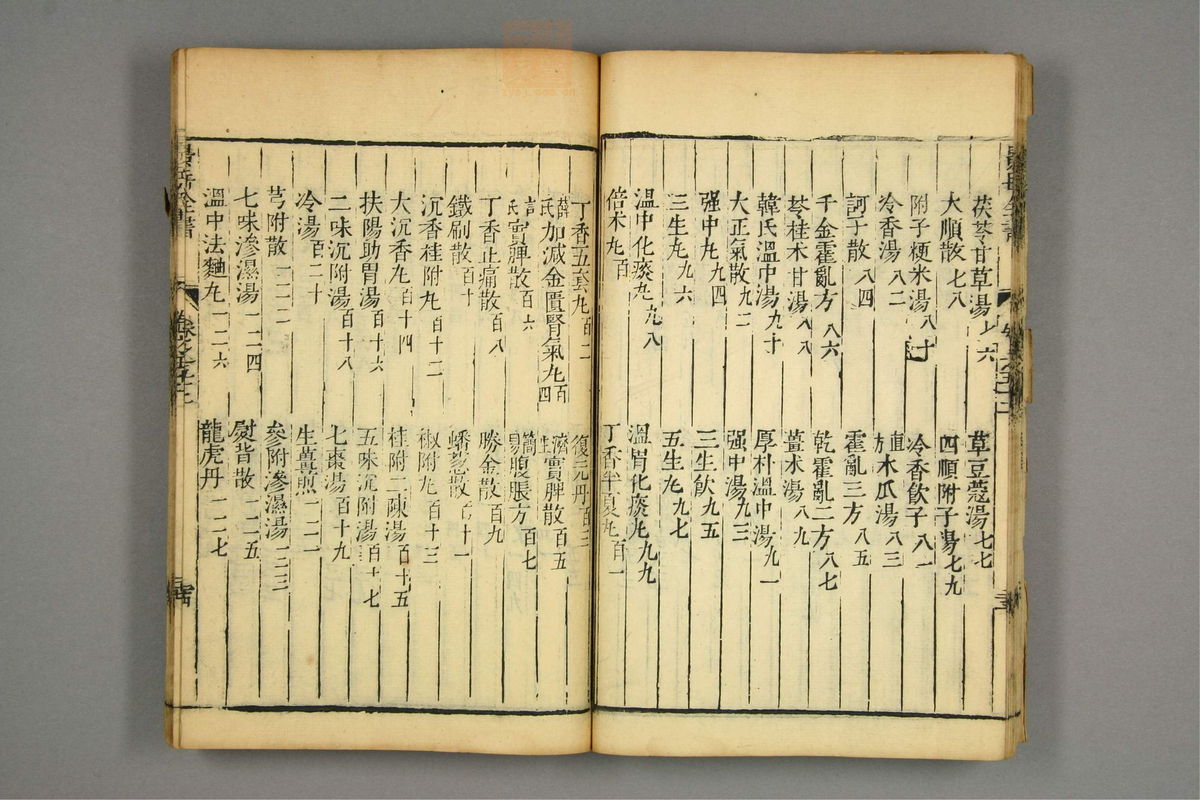 茯苓甘草湯七六
草豆蔻湯七七
大順散七八
四順附子湯七九
附子粳米湯八十
冷香飲子八一
冷香湯八二
木瓜湯八三
訶子散八四
霍亂三方八五
千金霍亂方八六
乾霍亂二方八七
苓桂木甘湯八八
薑术湯八九
韓氏溫中湯九十
厚朴溫中湯九一
大正氣散九二
强中湯九三
强中丸九四
三生飲九五
三生丸九六
五生丸九七
溫中化痰丸九八
溫胃化痰丸九九
倍术丸百
丁香半夏丸百一
丁香五套丸百二
復元丹百三
薛氏加减金匱腎氣丸百四
濟生實脾散百五
實脾散百六
簡易腹脹方百七
丁香止痛散百八
勝金散百九
鐵刷散百十
蟠葱散百十一
沉香桂附丸百十二
椒附丸百十三
大沉香丸百十四
桂附二陳湯百十五
扶陽助胃湯百十六
五味沉附湯百十七
二味沉附湯百十八
七棗湯百十九
冷湯百二十
生薑煎一二一
芎附散一二二
參附滲濕湯一二三
七味滲濕湯一二四
熨背散一二五
溫中法麯丸一二六
龍虎丹一二七
景岳全書